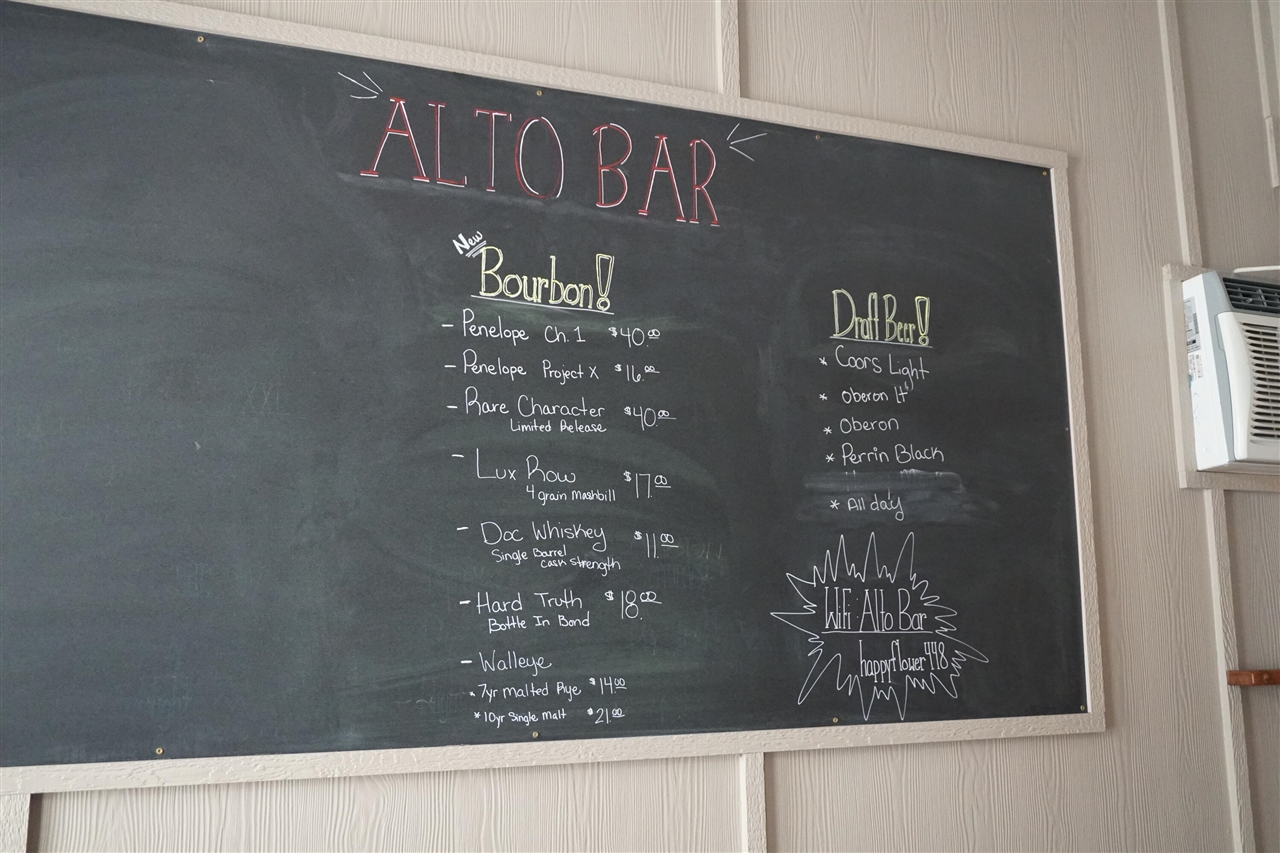 ALTO BAR
New
Bourbon!
- Penelope Ch. 1 $40.00
- Penelope Project X $16.00
- Rare Character $40.00
Limited Release
- Lux Row $17.00
4 grain Mashbill
- Doc Whiskey $11.00
Single Barrel
cask strength
- Hard Truth $18.00
Bottle In Bond
- Walleye
* 7yr Malted Rye $14.00
* 10yr Single Malt $21.00
Draft Beer!
* Coors Light
* Oberon lt
* Oberon
* Perrin Black
* All day
Wifi: Alto Bar
happyflower448